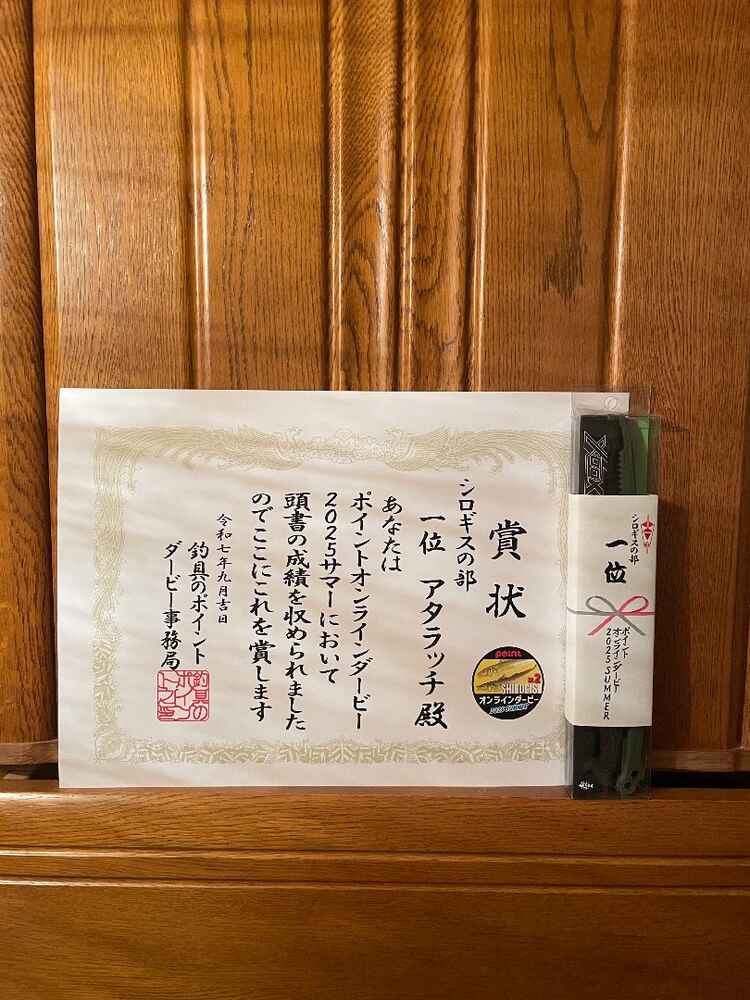 賞状
シロギスの部
一位 アタラッチ 殿
あなたは
ポイントオンラインダービー
2025サマーにおいて
頭書の成績を収められました
のでここにこれを賞します
令和七年九月吉日
釣具のポイント
ダービー事務局
釣具の
ポイン
point
SHIROGIS
オンラインダービー
2025 SUMMER
シロギスの部
一位
ポイント
オンラインダービー
2025 SUMMER